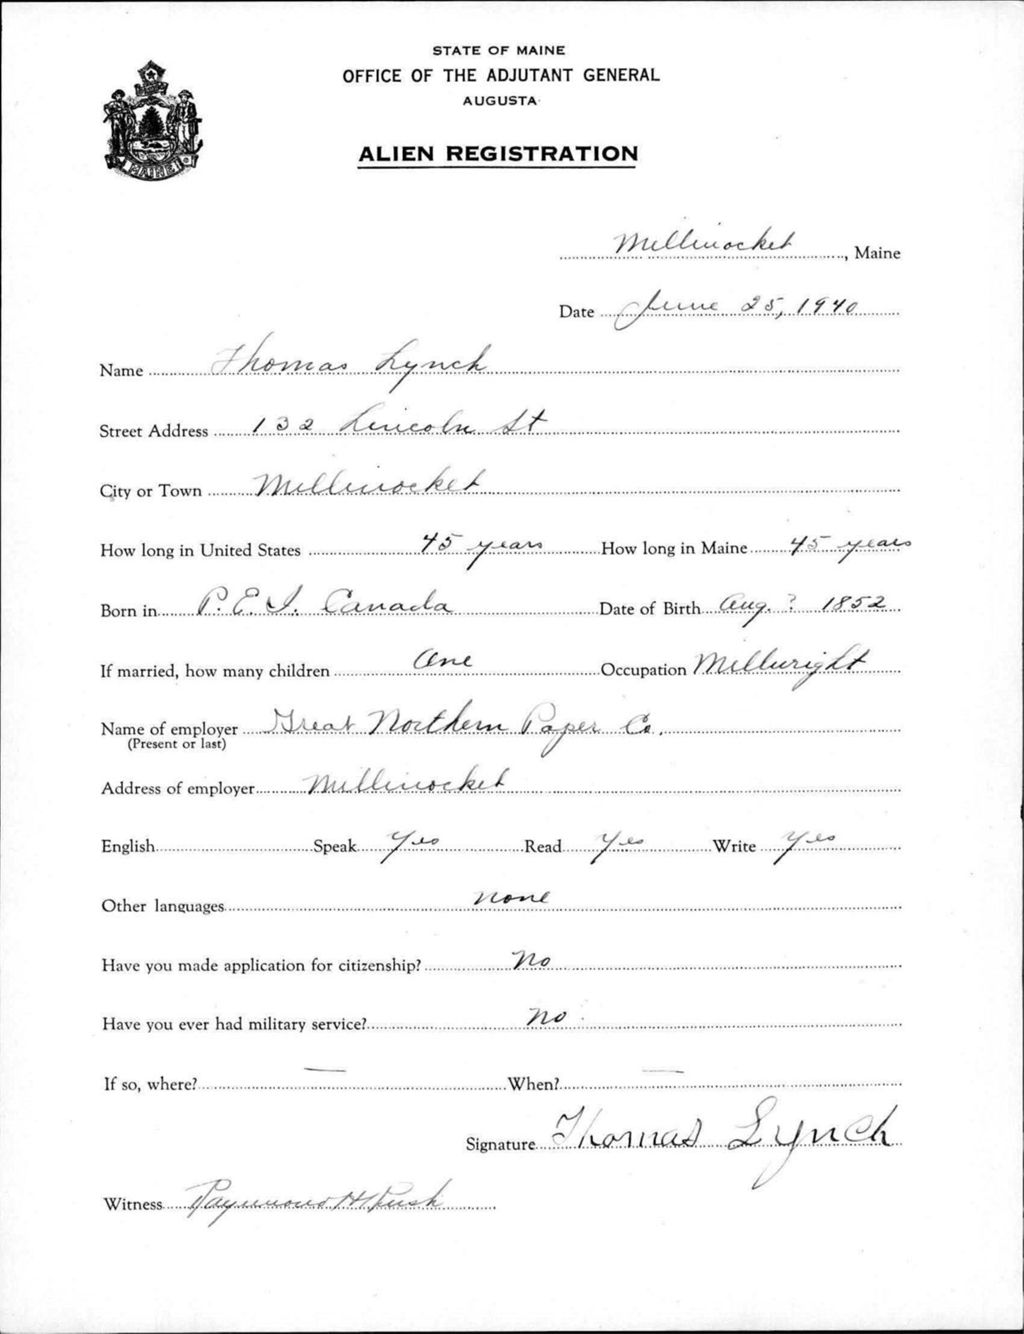 STATE OF MAINE
OFFICE OF THE ADJUTANT GENERAL
AUGUSTA
ALIEN REGISTRATION
MAINE
Millinocket, Maine
Date June 25, 1940
Name Thomas Lynch
Street Address 132 Lincoln St
City or Town Millinocket
How long in United States 45 years How long in Maine 45 years
Born in P.E.I. Canada Date of Birth Aug. ? 1852
If married, how many children One Occupation Millwright
Name of employer Great Northern Paper Co.
(Present or last)
Address of employer Millinocket
English Speak Yes Read Yes Write Yes
Other languages none
Have you made application for citizenship? No
Have you ever had military service? No
If so, where? — When? —
Signature Thomas Lynch
Witness Raymond H Rush